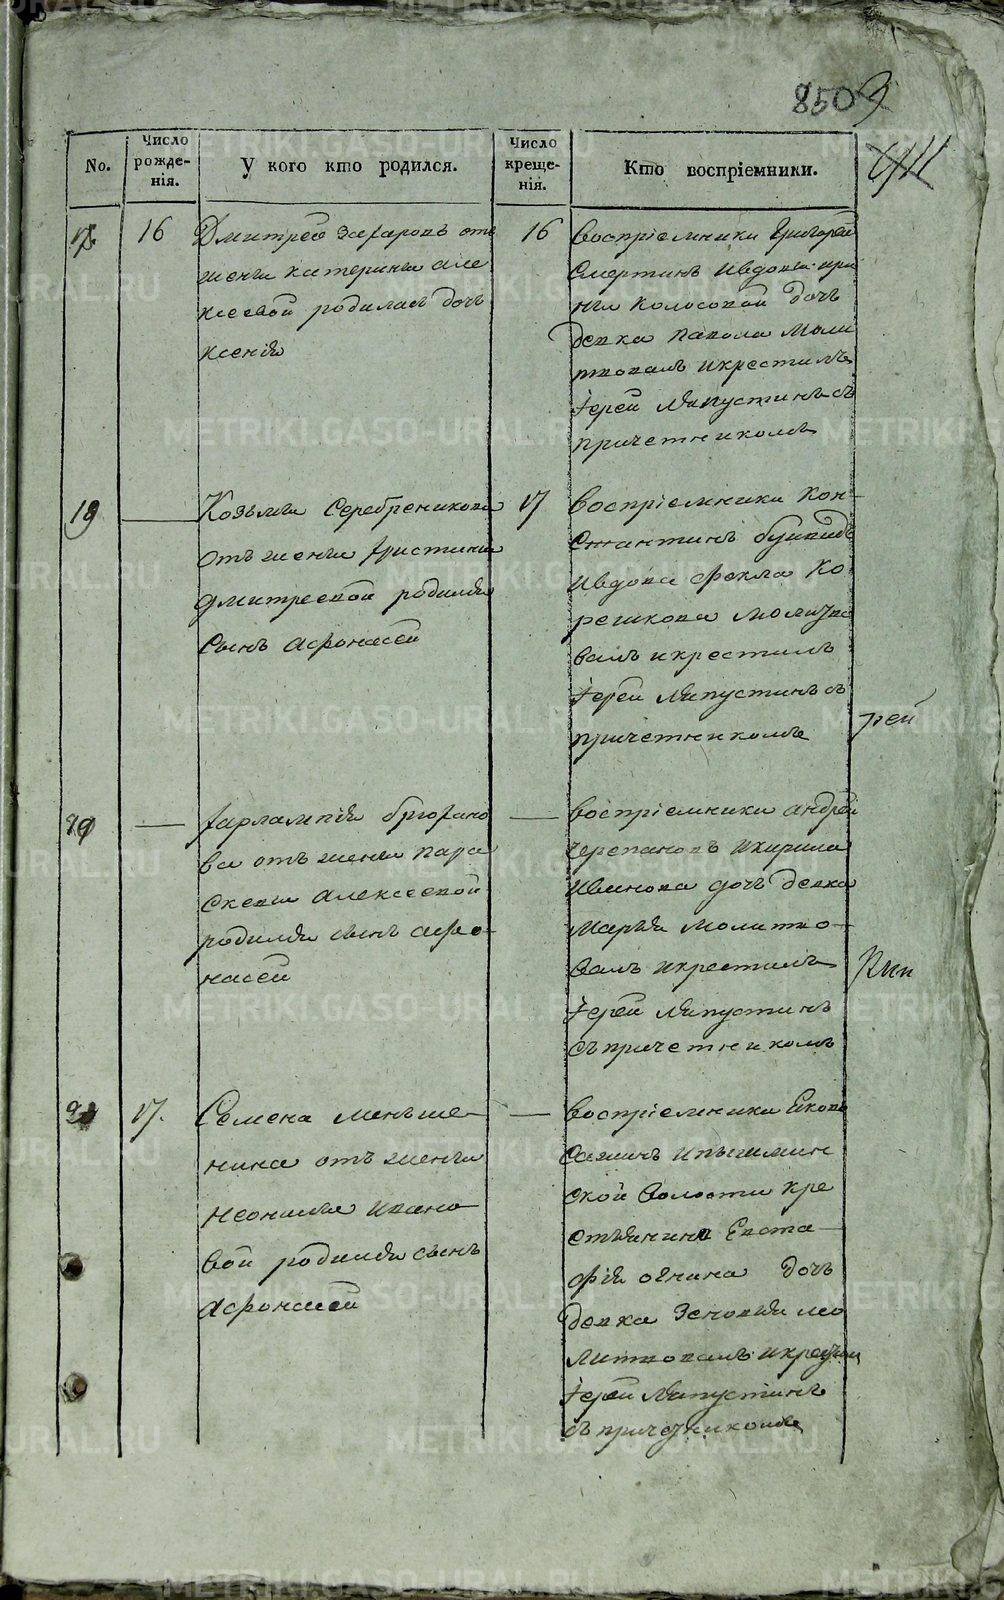 8509
No.
Число рожде-нія.
У кого кто родился.
Число креще-нія.
Кто воспріемники.
16
Дмитрей Захаровъ отъ
жены катерины але
ксеевой родилась дочь
ксенія
16
воспріемники Григорей
Смертинъ
Колосовой дочь
девка Павола Моли
твовалъ икрестилъ
іерей Ляпустинъ съ
причетникомъ
18
Козьмы Серебреникова
отъ жены христины
дмитреевой родился
сынъ афонасей
17
воспріемники Кон-
стантинъ
Ивдова фекла Ко
решкова молитво
валъ икрестилъ
іерей Ляпустинъ съ
причетникомъ
рей
харлампія брюхано
ва отъ жены пара
скевы алексеевой
родился сынъ афо-
насей
воспріемники андрей
черепановъ икирила
Иванова дочь девка
марья молитво-
валъ икрестилъ
іерей Ляпустинъ
съпричетникомъ
17.
Семена меньше-
нина отъ жены
неонилы ивано-
вой родился сынъ
афонасей
воспріемники Еково
ипышмин
ской волости кре
стьянина Евста-
фія дочь
девка Зеновья мо
литвовалъ икрестил
іерей Ляпустинъ
съ причетникомъ
METRIKI.GASO-URAL.RU